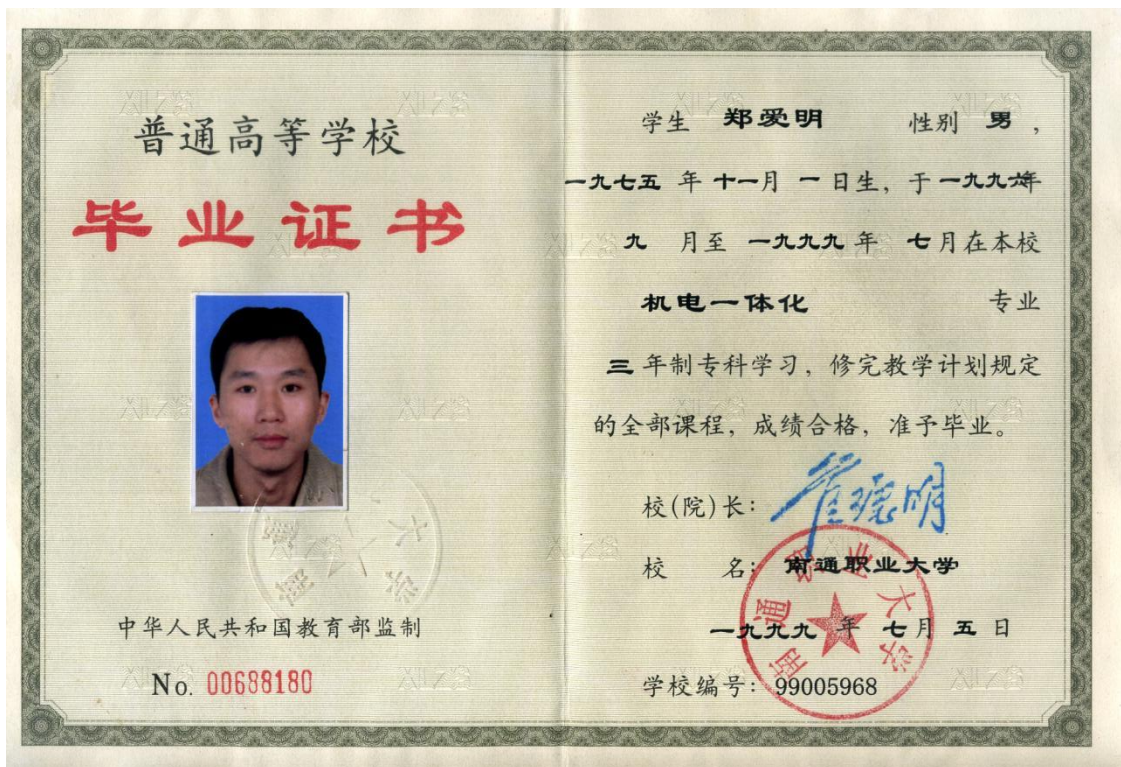 普通高等学校
毕业证书
中华人民共和国教育部监制
No. 00688180
学生 郑爱明 性别 男，
一九七五 年 十一月 一 日生，于 一九九六年
九 月至 一九九九 年 七月在本校
机电一体化 专业
三 年制专科学习，修完教学计划规定
的全部课程，成绩合格，准予毕业。
校(院)长：
校 名：南通职业大学
一九九九 年 七月 五 日
学校编号：99005968
南通职业大学